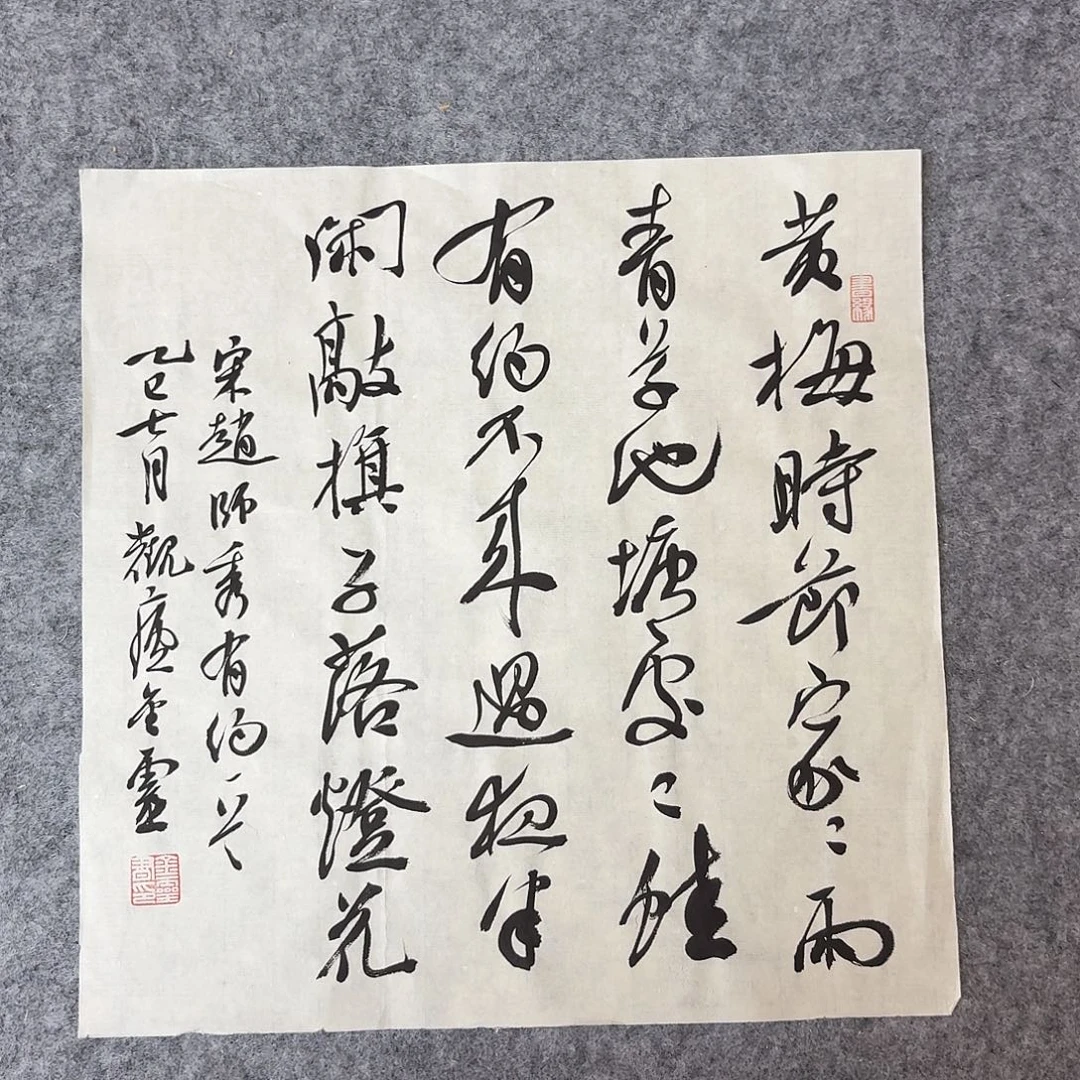 黄梅時節家〻雨
青草池塘處〻蛙
有約不来過夜半
閑敲棋子落燈花
宋趙師秀有約一首
乙巳七月觀金靈
金靈書印